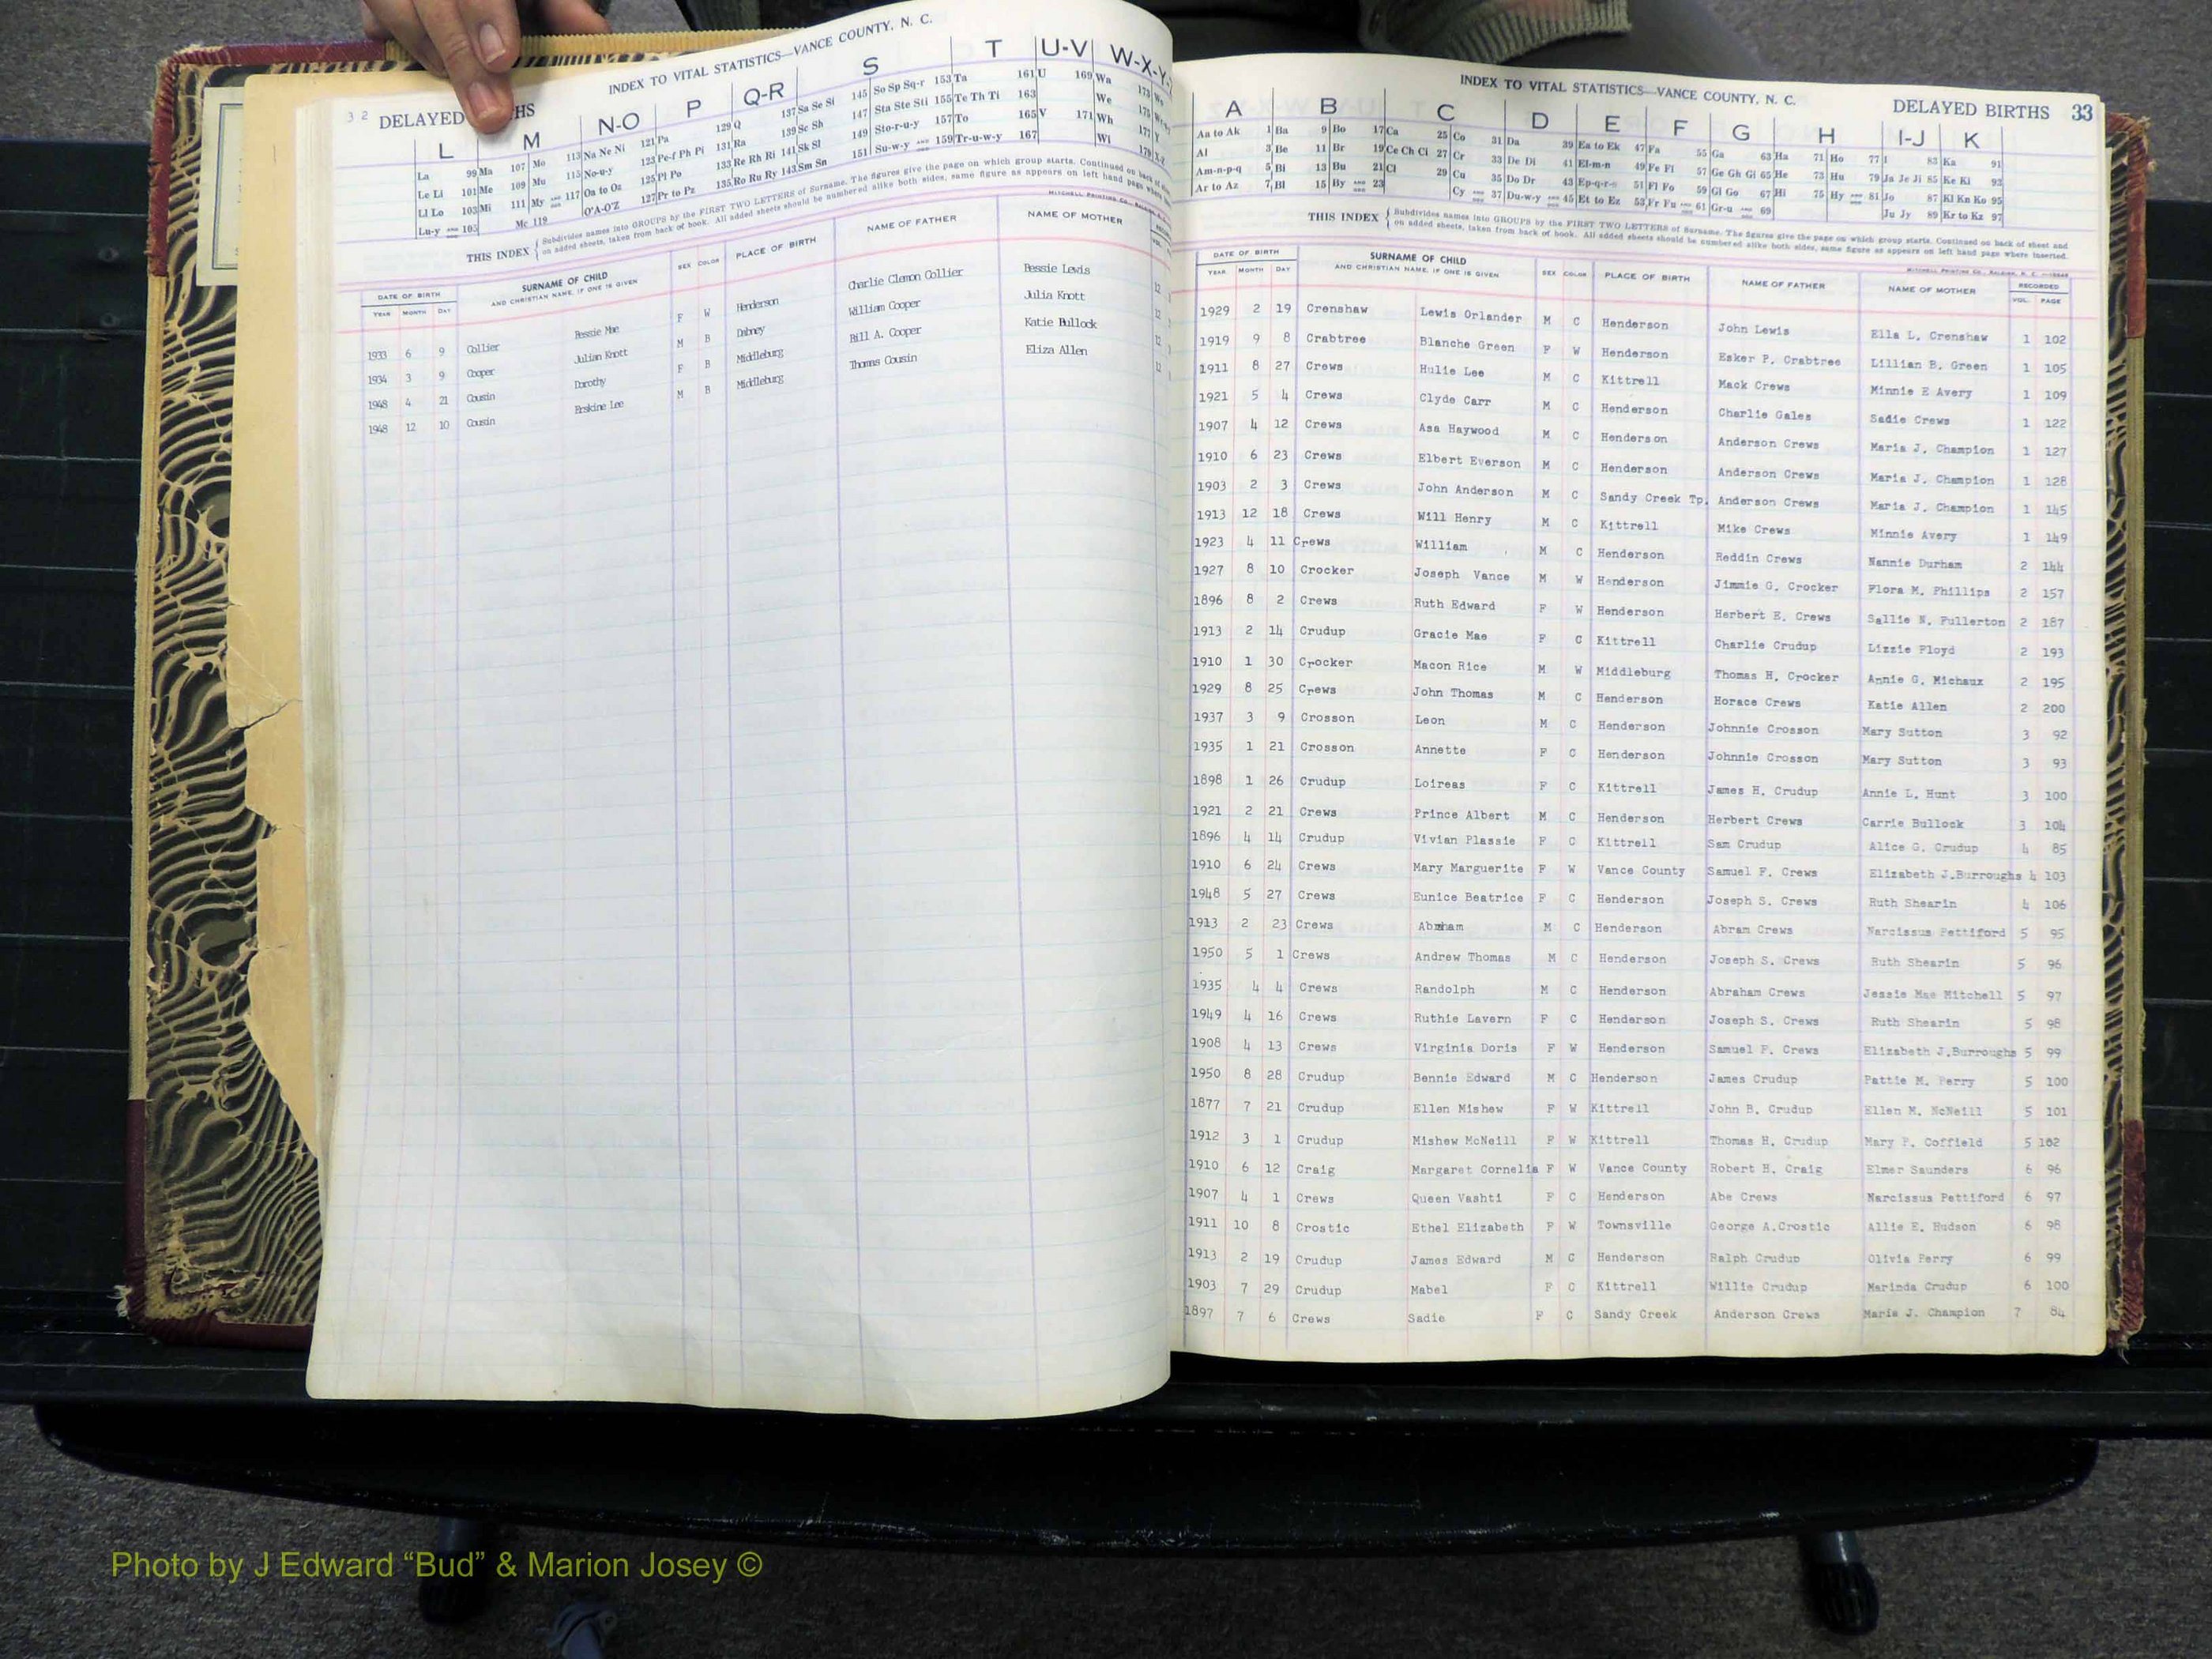 32 DELAYED THS INDEX TO VITAL STATISTICS—VANCE COUNTY, N. C.
L M N-O P Q-R S T U-V W-X-Y-
La 99 Ma 107 Mo 113 Na Ne Ni 121 Pa 129 Q 137 Sa Se Si 145 So Sp Sq-r 153 Ta 161 U 169 Wa 173
Le Li 101 Me 109 Mu 115 No-u-y 123 Pe-f Ph Pi 131 Ra 139 Sc Sh 147 Sta Ste Sti 155 Te Th Ti 163 We 175
Ll Lo 103 Mi 111 My 117 Oa to Oz 125 Pl Po 133 Re Rh Ri 141 Sk Sl 149 Sto-r-u-y 157 To 165 V 171 Wh 177
Lu-y 105 Mc 119 O'A-O'Z 127 Pr to Pz 135 Ro Ru Ry 143 Sm Sn 151 Su-w-y 159 Tr-u-w-y 167 Wi 179
THIS INDEX { Subdivides names into GROUPS by the FIRST TWO LETTERS of Surname. The figures give the page on which group starts. Continued on back of
on added sheets, taken from back of book. All added sheets should be numbered alike both sides, same figure as appears on left hand page where
DATE OF BIRTH SURNAME OF CHILD SEX COLOR PLACE OF BIRTH NAME OF FATHER NAME OF MOTHER
YEAR MONTH DAY AND CHRISTIAN NAME, IF ONE IS GIVEN
1933 6 9 Collier Bessie Mae F W Henderson Charlie Clemon Collier Bessie Lewis 12
1934 3 9 Cooper Julian Knott M B Dabney William Cooper Julia Knott 12
1948 4 21 Cousin Dorothy F B Middleburg Bill A. Cooper Katie Bullock 12
1948 12 10 Cousin Erskine Lee M B Middleburg Thomas Cousin Eliza Allen 12
INDEX TO VITAL STATISTICS—VANCE COUNTY, N. C. DELAYED BIRTHS 33
A B C D E F G H I-J K
Aa to Ak 1 Ba 9 Bo 17 Ca 25 Co 31 Da 39 Ea to Ek 47 Fa 55 Ga 63 Ha 71 Ho 77 I 83 Ka 91
Al 3 Be 11 Br 19 Ce Ch Ci 27 Cr 33 De Di 41 El-m-n 49 Fe Fi 57 Ge Gh Gi 65 He 73 Hu 79 Ja Je Ji 85 Ke Ki 93
Am-n-p-q 5 Bi 13 Bu 21 Cl 29 Cu 35 Do Dr 43 Ep-q-r-s 51 Fl Fo 59 Gl Go 67 Hi 75 Hy 81 Jo 87 Kl Kn Ko 95
Ar to Az 7 Bl 15 By 23 Cy 37 Du-w-y 45 Et to Ez 53 Fr Fu 61 Gr-u 69 Ju Jy 89 Kr to Kz 97
THIS INDEX { Subdivides names into GROUPS by the FIRST TWO LETTERS of Surname. The figures give the page on which group starts. Continued on back of sheet and
on added sheets, taken from back of book. All added sheets should be numbered alike both sides, same figure as appears on left hand page where inserted.
DATE OF BIRTH SURNAME OF CHILD SEX COLOR PLACE OF BIRTH NAME OF FATHER NAME OF MOTHER RECORDED
YEAR MONTH DAY AND CHRISTIAN NAME, IF ONE IS GIVEN VOL. PAGE
1929 2 19 Crenshaw Lewis Orlander M C Henderson John Lewis Ella L. Crenshaw 1 102
1919 9 8 Crabtree Blanche Green F W Henderson Esker P. Crabtree Lillian B. Green 1 105
1911 8 27 Crews Hulie Lee M C Kittrell Mack Crews Minnie E Avery 1 109
1921 5 4 Crews Clyde Carr M C Henderson Charlie Gales Sadie Crews 1 122
1907 4 12 Crews Asa Haywood M C Henderson Anderson Crews Maria J. Champion 1 127
1910 6 23 Crews Elbert Everson M C Henderson Anderson Crews Maria J. Champion 1 128
1903 2 3 Crews John Anderson M C Sandy Creek Tp. Anderson Crews Maria J. Champion 1 145
1913 12 18 Crews Will Henry M C Kittrell Mike Crews Minnie Avery 1 149
1923 4 11 Crews William M C Henderson Reddin Crews Nannie Durham 2 144
1927 8 10 Crocker Joseph Vance M W Henderson Jimmie G. Crocker Flora M. Phillips 2 157
1896 8 2 Crews Ruth Edward F W Henderson Herbert E. Crews Sallie N. Fullerton 2 187
1913 2 14 Crudup Gracie Mae F C Kittrell Charlie Crudup Lizzie Floyd 2 193
1910 1 30 Crocker Macon Rice M W Middleburg Thomas H. Crocker Annie G. Michaux 2 195
1929 8 25 Crews John Thomas M C Henderson Horace Crews Katie Allen 2 200
1937 3 9 Crosson Leon M C Henderson Johnnie Crosson Mary Sutton 3 92
1935 1 21 Crosson Annette F C Henderson Johnnie Crosson Mary Sutton 3 93
1898 1 26 Crudup Loireas F C Kittrell James H. Crudup Annie L. Hunt 3 100
1921 2 21 Crews Prince Albert M C Henderson Herbert Crews Carrie Bullock 3 104
1896 4 14 Crudup Vivian Plassie F C Kittrell Sam Crudup Alice G. Crudup 4 85
1910 6 24 Crews Mary Marguerite F W Vance County Samuel F. Crews Elizabeth J.Burroughs 4 103
1948 5 27 Crews Eunice Beatrice F C Henderson Joseph S. Crews Ruth Shearin 4 106
1913 2 23 Crews Abraham M C Henderson Abram Crews Narcissus Pettiford 5 95
1950 5 1 Crews Andrew Thomas M C Henderson Joseph S. Crews Ruth Shearin 5 96
1935 4 4 Crews Randolph M C Henderson Abraham Crews Jessie Mae Mitchell 5 97
1949 4 16 Crews Ruthie Lavern F C Henderson Joseph S. Crews Ruth Shearin 5 98
1908 4 13 Crews Virginia Doris F W Henderson Samuel F. Crews Elizabeth J.Burroughs 5 99
1950 8 28 Crudup Bennie Edward M C Henderson James Crudup Pattie M. Perry 5 100
1877 7 21 Crudup Ellen Mishew F W Kittrell John B. Crudup Ellen M. McNeill 5 101
1912 3 1 Crudup Mishew McNeill F W Kittrell Thomas H. Crudup Mary P. Coffield 5 102
1910 6 12 Craig Margaret Cornelia F W Vance County Robert H. Craig Elmer Saunders 6 96
1907 4 1 Crews Queen Vashti F C Henderson Abe Crews Narcissus Pettiford 6 97
1911 10 8 Crostic Ethel Elizabeth F W Townsville George A.Crostic Allie E. Hudson 6 98
1913 2 19 Crudup James Edward M C Henderson Ralph Crudup Olivia Perry 6 99
1903 7 29 Crudup Mabel F C Kittrell Willie Crudup Marinda Crudup 6 100
1897 7 6 Crews Sadie F C Sandy Creek Anderson Crews Maria J. Champion 7 84
Photo by J Edward “Bud” & Marion Josey ©